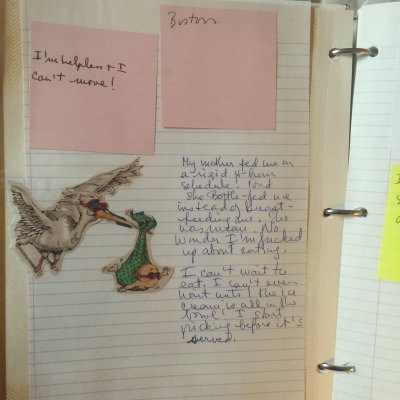 I'm helpless + I
can't move!
Boston
My mother fed me on
a rigid 4-hour
schedule!
She Bottle-fed me
instead of breast-
feeding me. She
was mean. No
wonder I'm fucked
up about eating.
I can't wait to
eat. I can't even
wait until the ice
cream is all in the
bowl! I start
picking before it's
served.